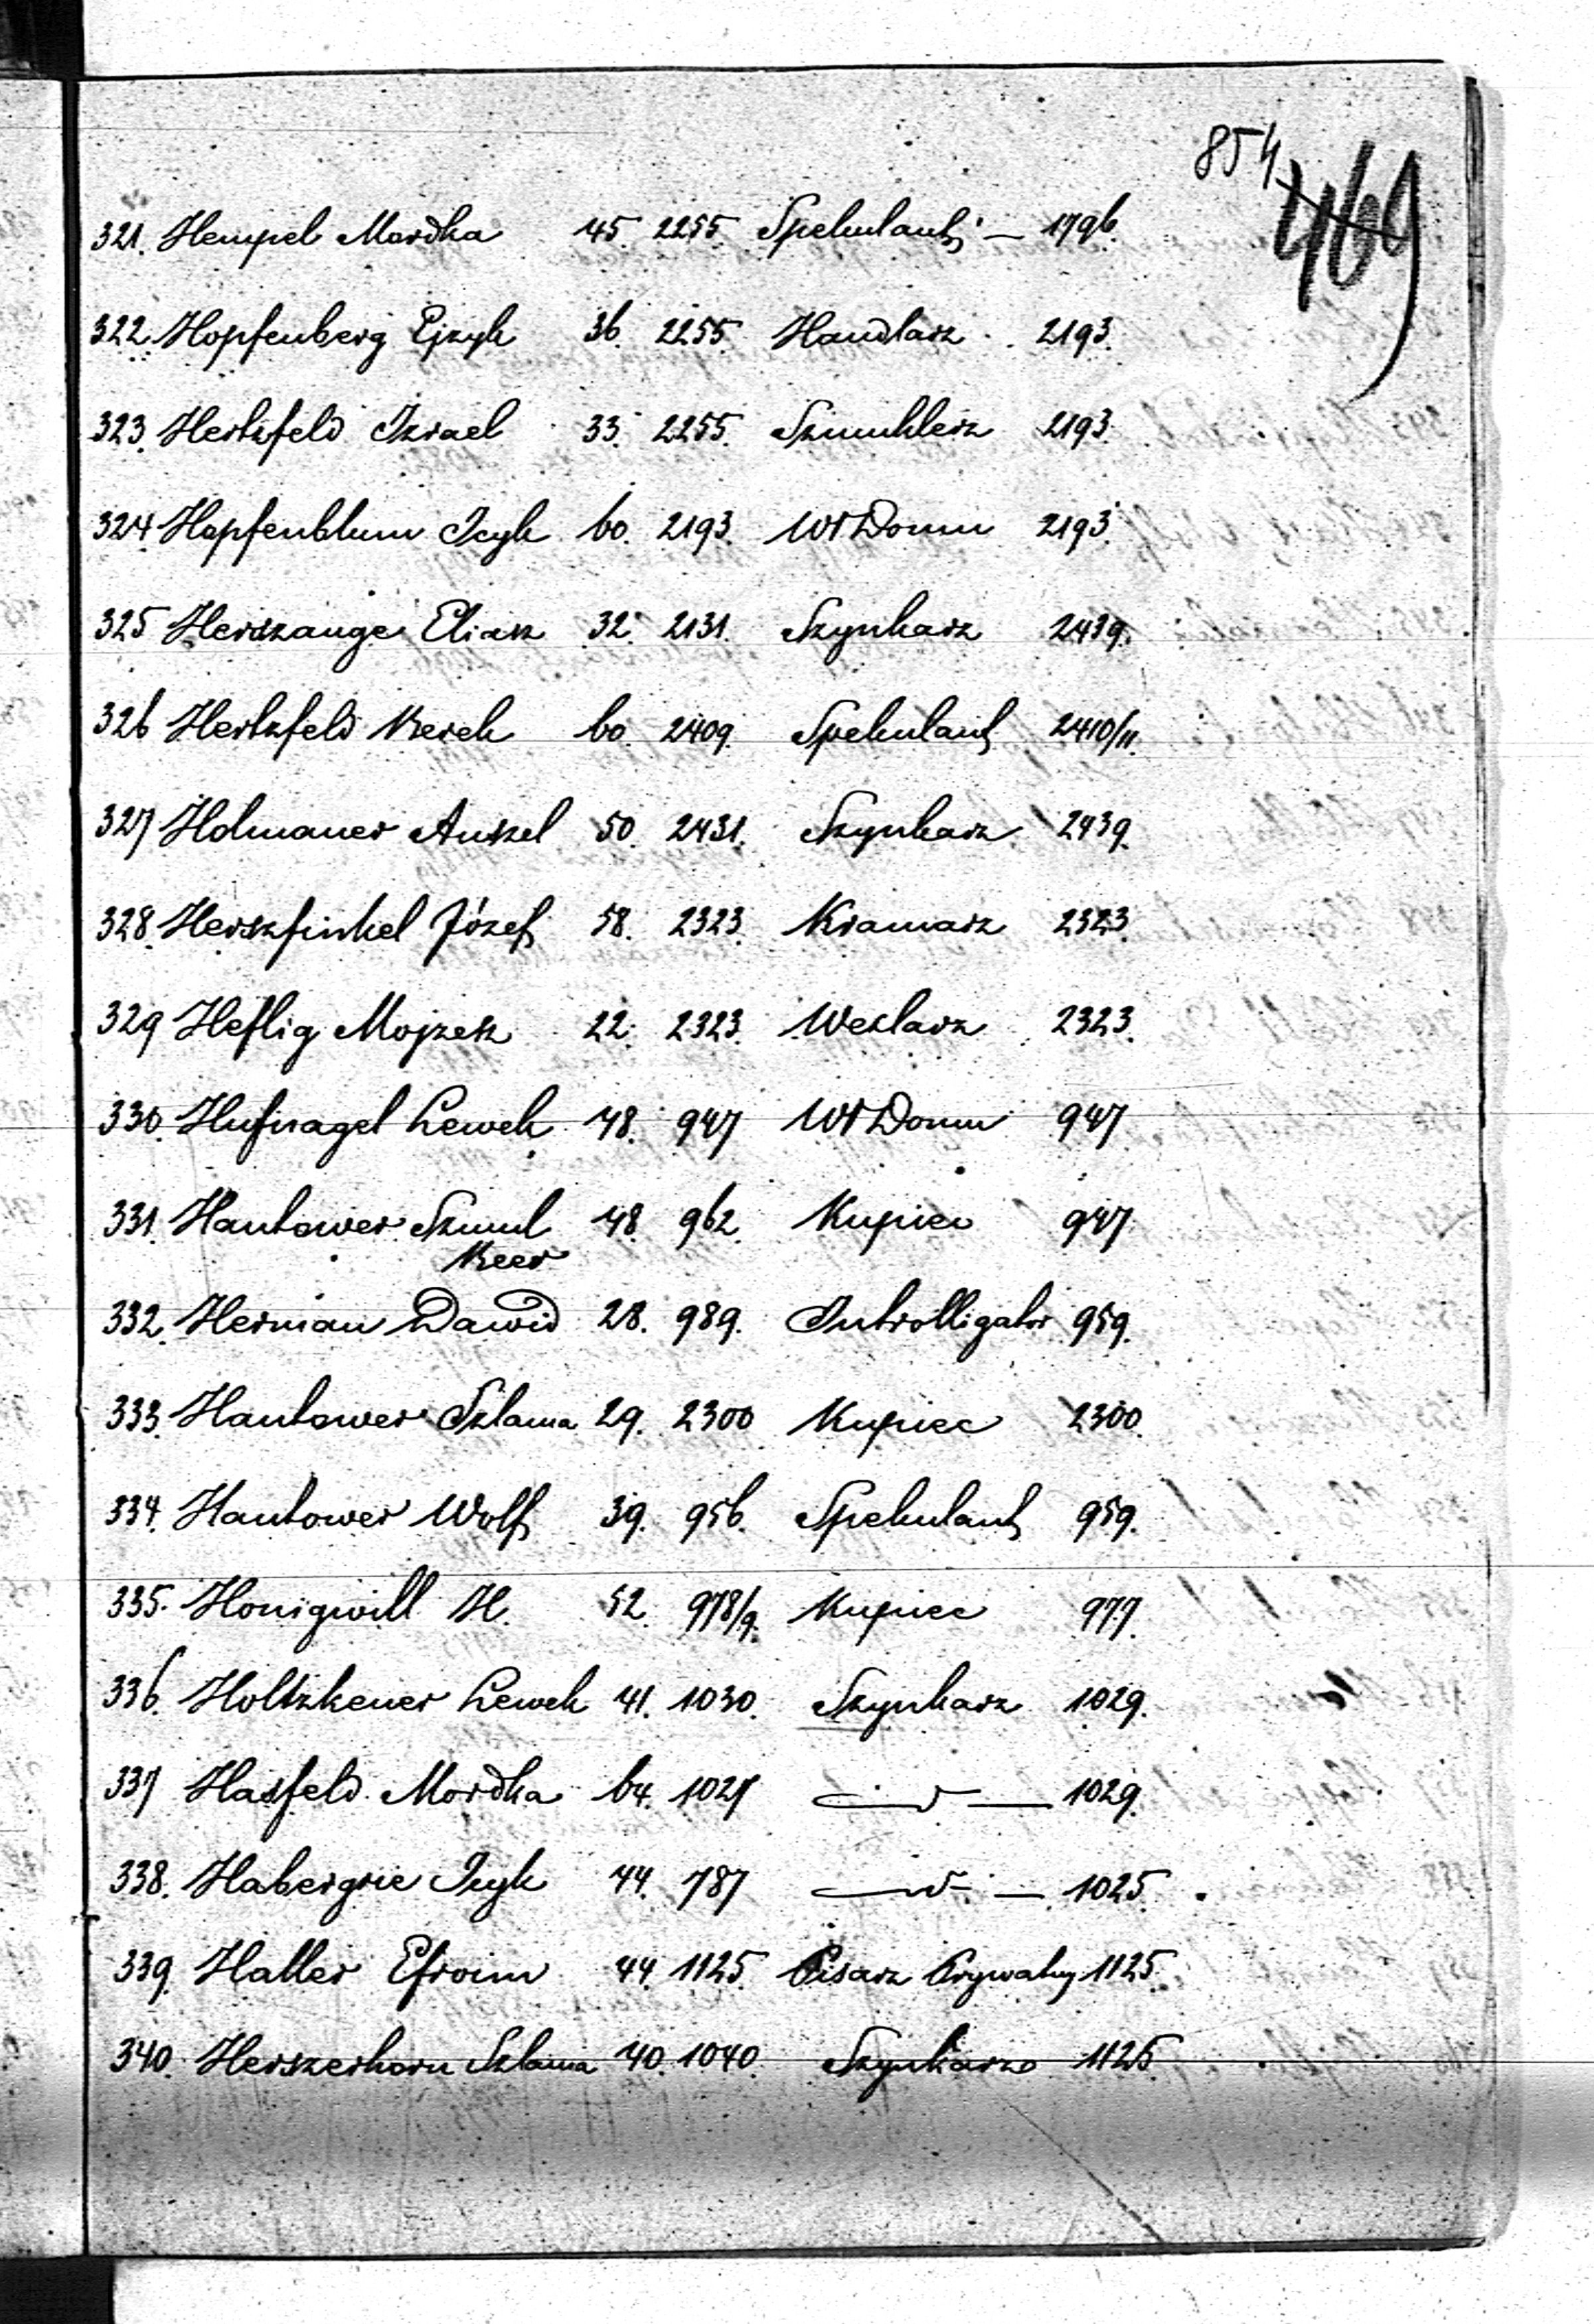 854
469
321. Hempel Mordka 45. 2255. Spekulant — 1796.
322. Hopfenberg Ejzyk 36. 2255. Handlarz 2193.
323. Hertzfeld Izrael 33. 2255. Szmuklerz 2193.
324. Hopfenblum Icyk 60. 2193. Wł Domu 2193.
325 Herszange Eliasz 32. 2131. Szynkarz 2439.
326 Hertzfeld Berek 60. 2409. Spekulant 2410/11.
327 Holmaner Anszel 50. 2431. Szynkarz 2439.
328. Herszfinkel Józef 58. 2323. Kramarz 2323.
329 Heflig Mojzesz 22. 2323. Wexlarz 2323.
330. Hufnagel Lewek 48. 947 Wł Domu 947
331. Hantower Szmul 48. 962. Kupiec 947
Beer
332. Herman Dawid 28. 989. Introlligator 959.
333. Hantower Szlama 29. 2300 Kupiec 2300.
334. Hantower Wolf 39. 956. Spekulant 959.
335. Honigwill H. 52. 978/9. Kupiec 977.
336. Holtzkener Lewek 41. 1030. Szynkarz 1029.
337 Hasfeld Mordka 64. 1027 — d — 1029.
338. Habergrie Icyk 44. 787 — d — 1025.
339. Haller Efroim 44. 1125. Pisarz Prywatny 1125.
340. Herszerhorn Szlama 40. 1040. Szynkarz 1125